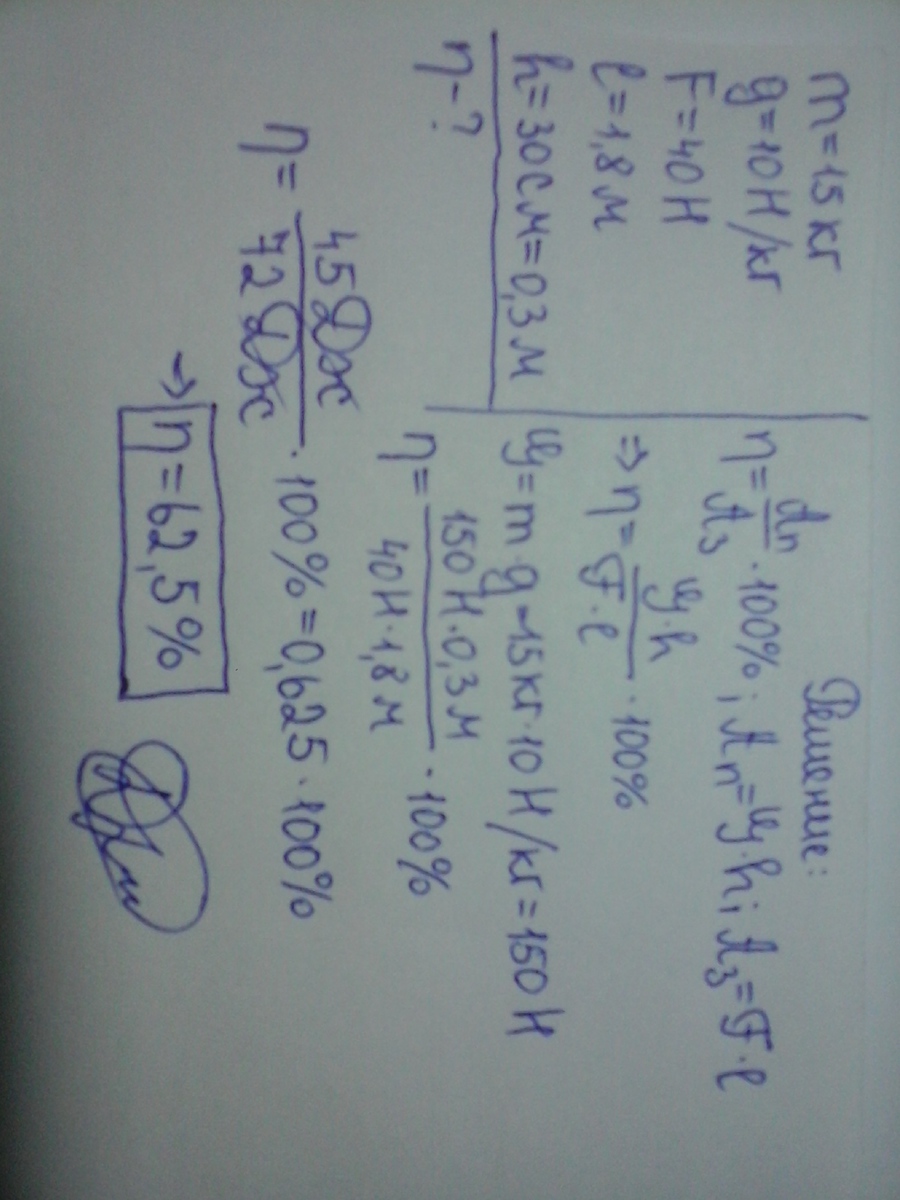 m=15кг
g=10Н/кг
F=40Н
l=1,8м
h=30см=0,3м
η-?
Решение:
η=Aп/Aз·100%; Aп=g·h; Aз=F·l
⇒η=g·h/F·l·100%
g=m·g=15кг·10Н/кг=150Н
η=150Н·0,3м/40Н·1,8м·100%
η=45Дж/72Дж·100%=0,625·100%
→η=62,5%